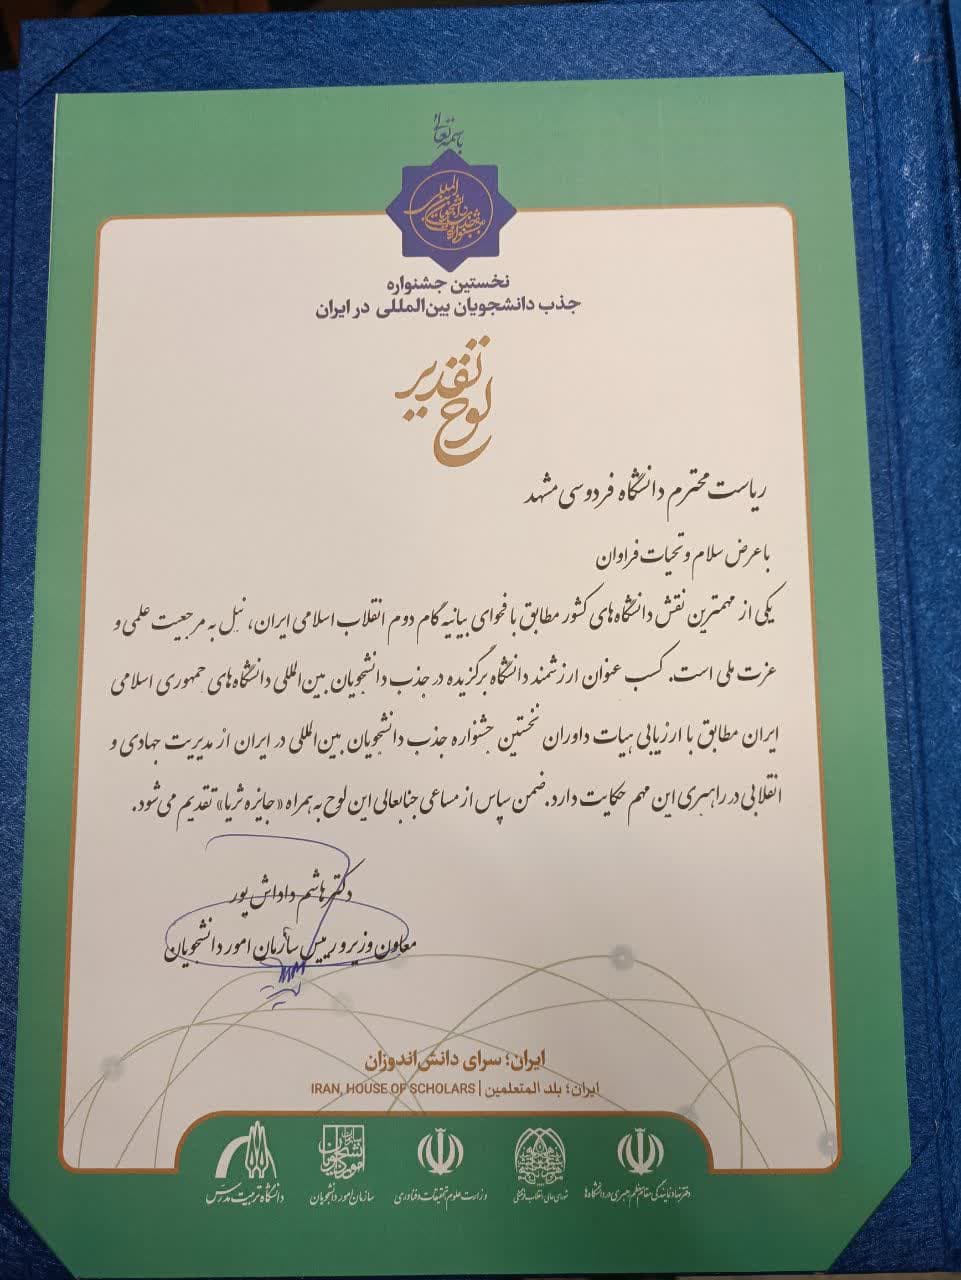 باسمه تعالی
نخستین جشنواره
جذب دانشجویان بین‌المللی در ایران
لوح تقدیر
ریاست محترم دانشگاه فردوسی مشهد
با عرض سلام و تحیات فراوان
یکی از مهمترین نقش دانشگاه‌های کشور مطابق با فحوای بیانیه گام دوم انقلاب اسلامی ایران، نیل به مرجعیت علمی و
عزت ملی است. کسب عنوان ارزشمند دانشگاه برگزیده در جذب دانشجویان بین‌المللی دانشگاه‌های جمهوری اسلامی
ایران مطابق با ارزیابی هیات داوران نخستین جشنواره جذب دانشجویان بین‌المللی در ایران از مدیریت جهادی و
انقلابی در راهبری این مهم حکایت دارد. ضمن سپاس از مساعی جنابعالی این لوح به همراه «جایزه ثریا» تقدیم می‌شود.
دکتر هاشم داداش پور
معاون وزیر و رییس سازمان امور دانشجویان
ایران؛ سرای دانش‌اندوزان
ایران؛ بلد المتعلمین | IRAN, HOUSE OF SCHOLARS
دفتر نهاد نمایندگی مقام معظم رهبری در دانشگاه‌ها
شورای عالی انقلاب فرهنگی
وزارت علوم تحقیقات و فناوری
سازمان امور دانشجویان
دانشگاه تربیت مدرس